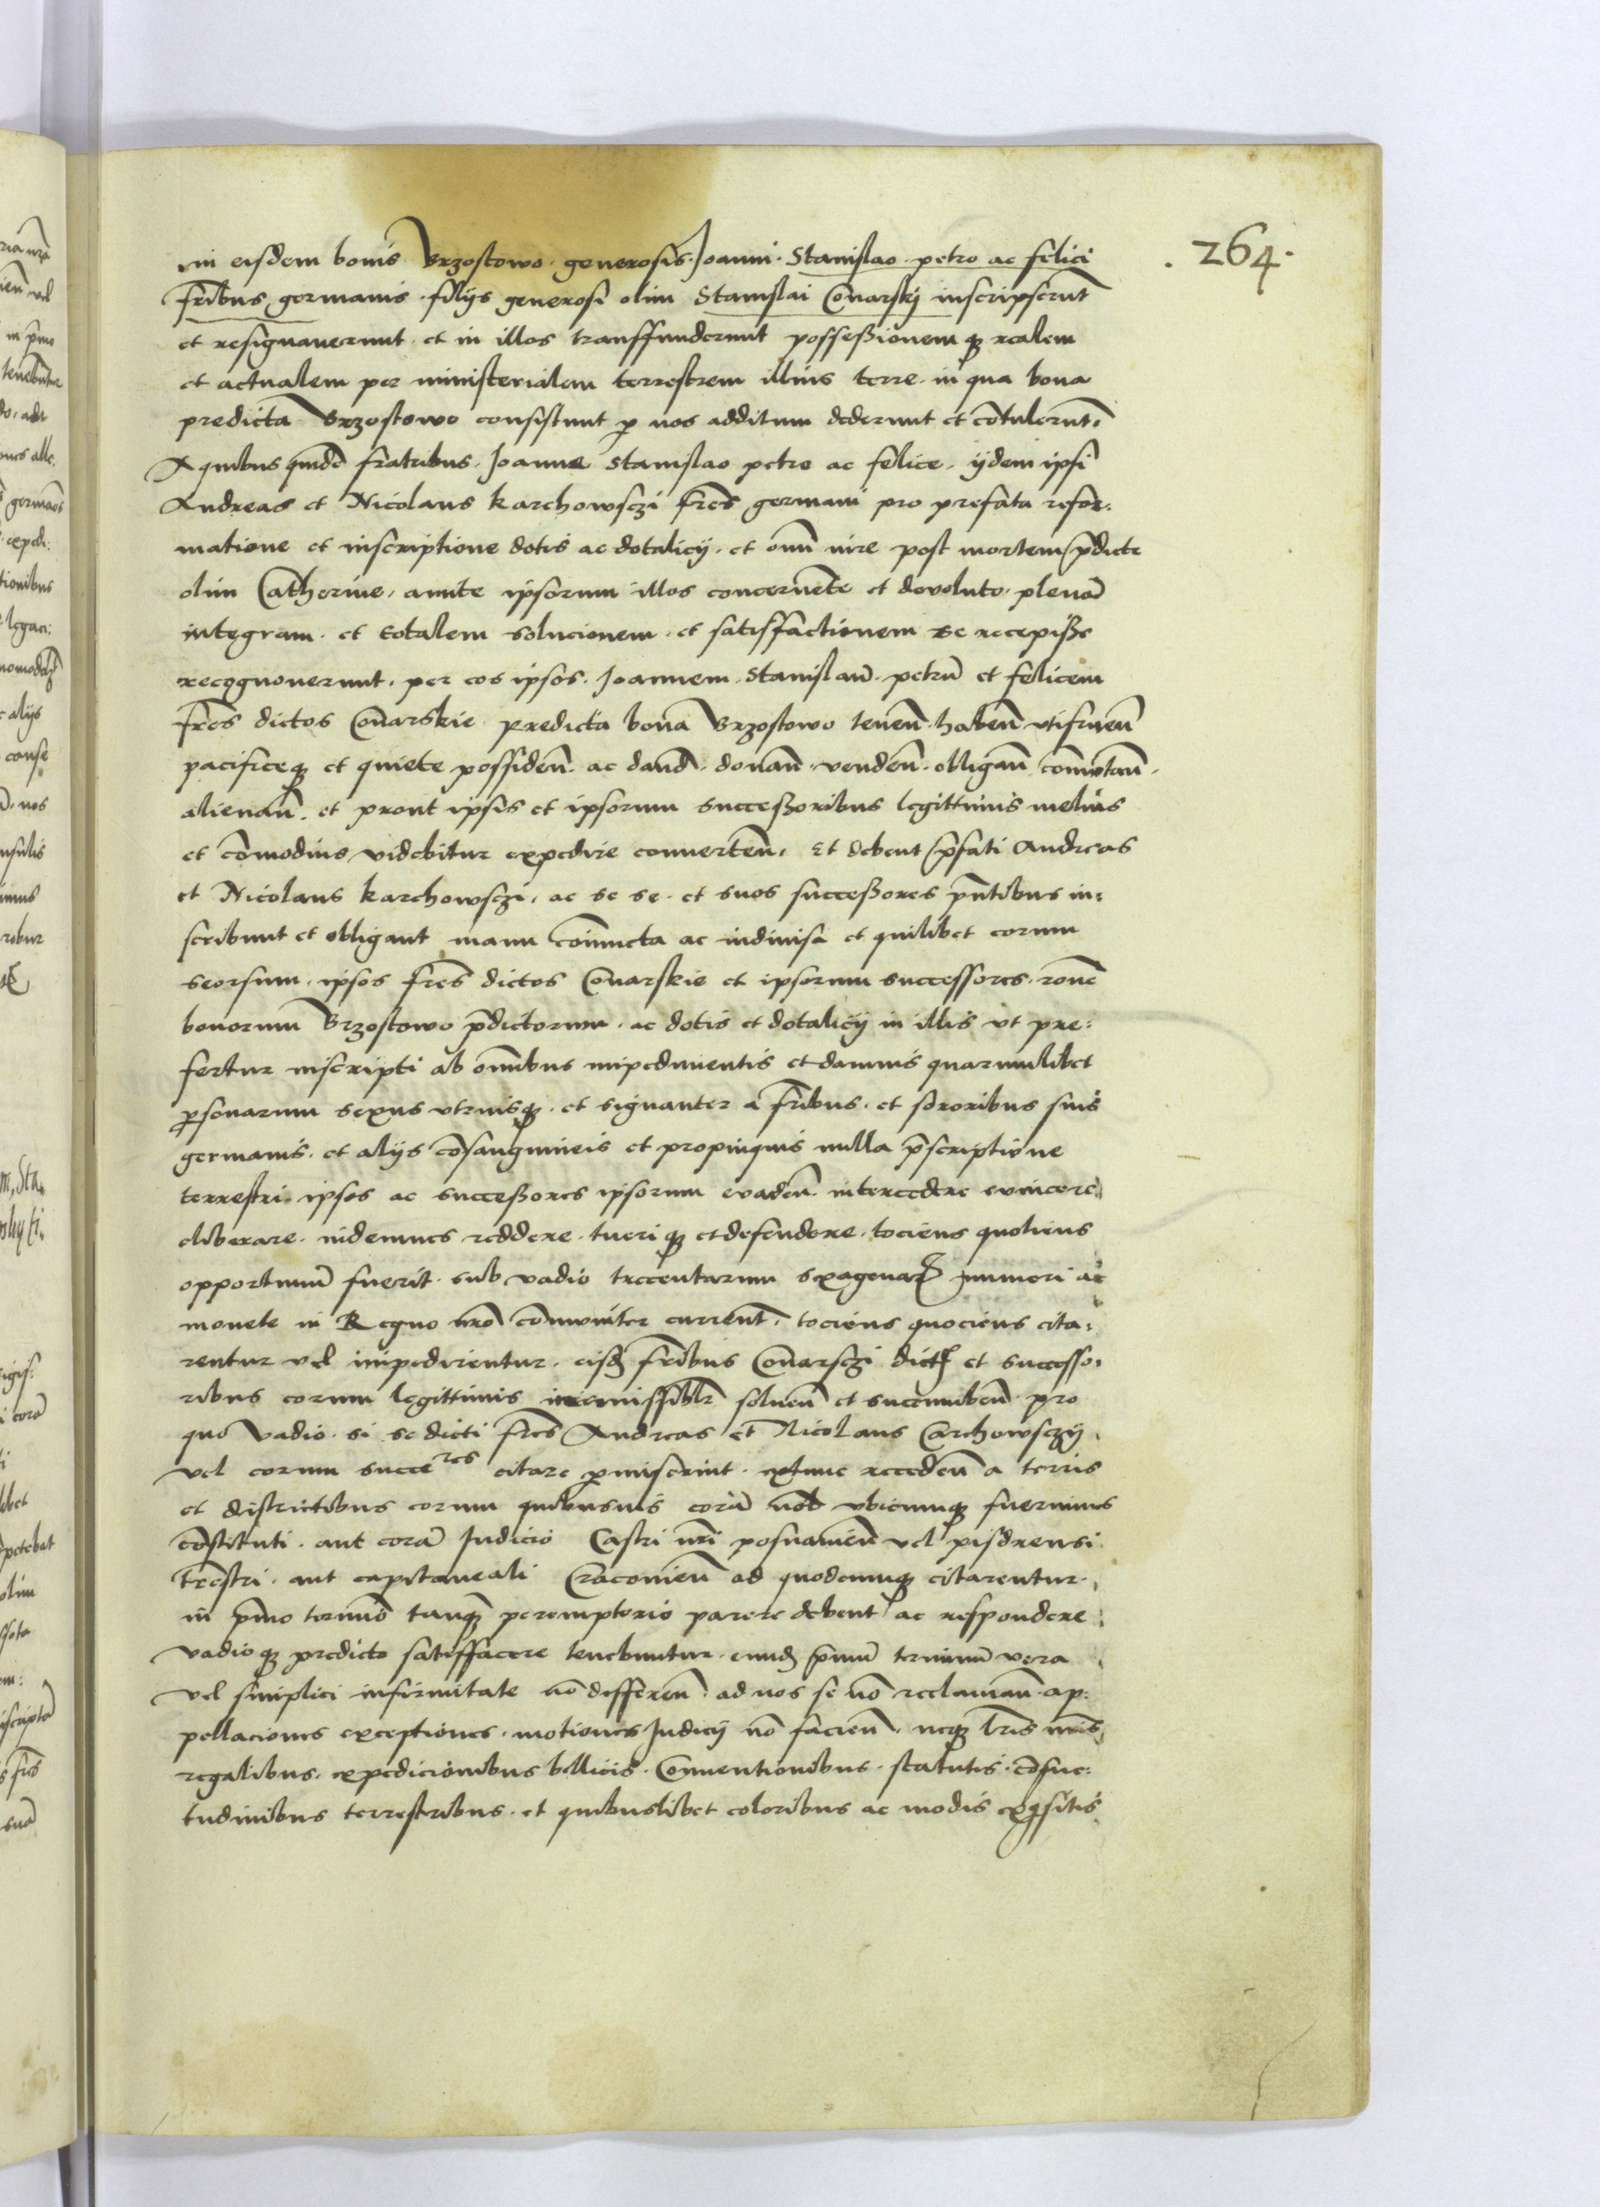 264.
in eisdem bonis Brzostowo generosis Joanni Stanislao petro ac felici
fribus germanis filijs generosi olim Stanislai Conarskij inscripserunt
et resignauerunt et in illos transffunderunt possessionemq realem
et actualem per ministerialem terrestrem illius terre in qua bona
predicta Brzostowo consistunt p nos additum dederunt et contulerunt.
A quibus quidem fratribus Joanne Stanislao petro ac felice ijdem ipsi
Andreas et Nicolaus Karchowsczi fres germani pro prefata refor:
matione et inscriptione dotis ac dotalicij et omni iure post mortem pdicte
olim Catherine amite ipsorum illos concernete et deuoluto plenam
integram et totalem solucionem et satisffactionem se recepisse
recognouerunt per eos ipsos Joannem Stanislaum petrum et felicem
fres dictos Conarskie predicta bona Brzostowo tenen haben vtifruen
pacificeq et quiete possiden ac dand donan venden obligan comutan
alienan et prout ipsis et ipsorum successoribus legittimis melius
et comodius videbitur expedire conuerten. Et debent pfati Andreas
et Nicolaus Karchowsczi ac se se et suos successores pntibus in:
scribunt et obligant manu coniuncta ac indiuisa et quilibet eorum
seorsum ipsos fres dictos Conarskie et ipsorum successores rone
bonorum Brzostowo pdictorum ac dotis et dotalicij in illis vt pre:
fertur inscripti ab omnibus impedimentis et damnis quarumlibet
psonarum sexus vtriusq et signanter a fribus et sororibus suis
germanis et alijs consanguineis et propinquis nulla pscriptione
terrestri ipsos ac successores ipsorum euaden intercedere euincere
eliberare indemnes reddere tueriq et defendere tociens quotiens
opportunum fuerit sub vadio trecentarum sexagenar numeri ac
monete in Regno nro comuniter current tociens quociens cita:
rentur vel impedirentur eisd fribus Conarsczi dict et successo:
ribus eorum legittimis irremissiblr soluen et succumben pro
quo vadio si se dicti fres Andreas et Nicolaus Carchowsczij
vel eorum succeres citare pmiserint extunc receden a terris
et districtibus eorum quibusuis coram nob vbicumq fuerimus
constituti aut coram Judicio Castri nri posnanien vel pisdrensi
trestri aut capitaneali Cracouien ad quodcumq citarentur
in pmo termino tanq peremptorio parere debent ac respondere
vadioq predicto satisffacere tenebuntur eund pmum terminum vera
vel simplici infirmitate no differen ad nos se no reclaman ap:
pellaciones exceptiones motiones Judicij no facien neq lris nris
regalibus expedicionibus bellicis Conuentionibus statutis consue:
tudinibus terrestribus et quibuslibet coloribus ac modis exqsitis